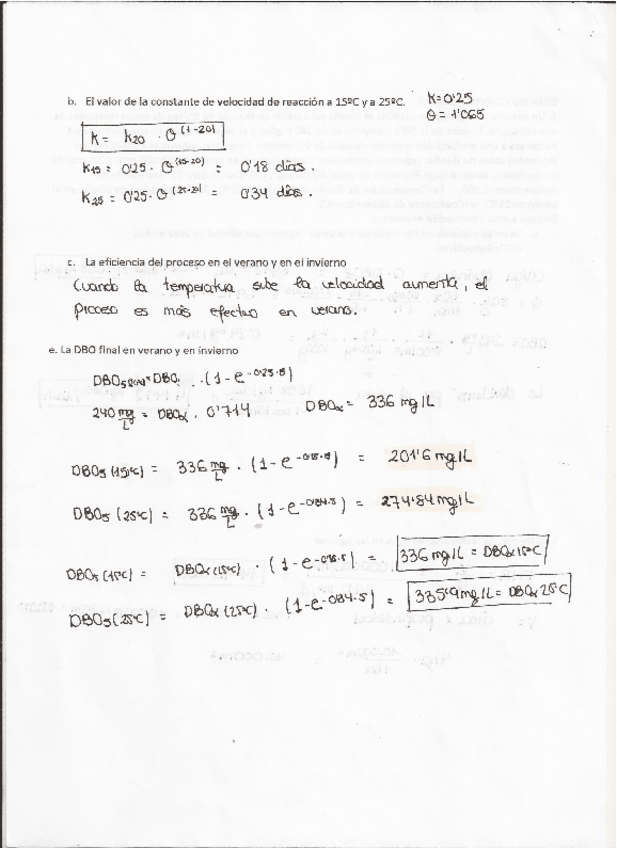 b. El valor de la constante de velocidad de reacción a 15ºC y a 25ºC. K=0'25
θ = 1'065
K = K20 · θ^(T-20)
K15 = 0'25 · θ^(15-20) = 0'18 días.
K25 = 0'25 · θ^(25-20) = 0'34 días.
c. La eficiencia del proceso en el verano y en el invierno
Cuando la temperatura sube la velocidad aumenta, el
proceso es más efectivo en verano.
e. La DBO final en verano y en invierno
240 mg/L = DBO∝ · 0'714 DBO∝ = 336 mg/L
DBO5 (15ºC) = 336 mg/L · (1-e^-0'18·5) = 201'6 mg/L
DBO5 (25ºC) = 336 mg/L · (1-e^-0'34·5) = 274'84 mg/L
DBO5 (15ºC) = DBO∝ (15ºC) · (1-e^-0'18·5) = 336 mg/L = DBO∝ 15ºC
DBO5 (25ºC) = DBO∝ (25ºC) · (1-e^-0'34·5) = 335'9 mg/L = DBO∝ 25ºC